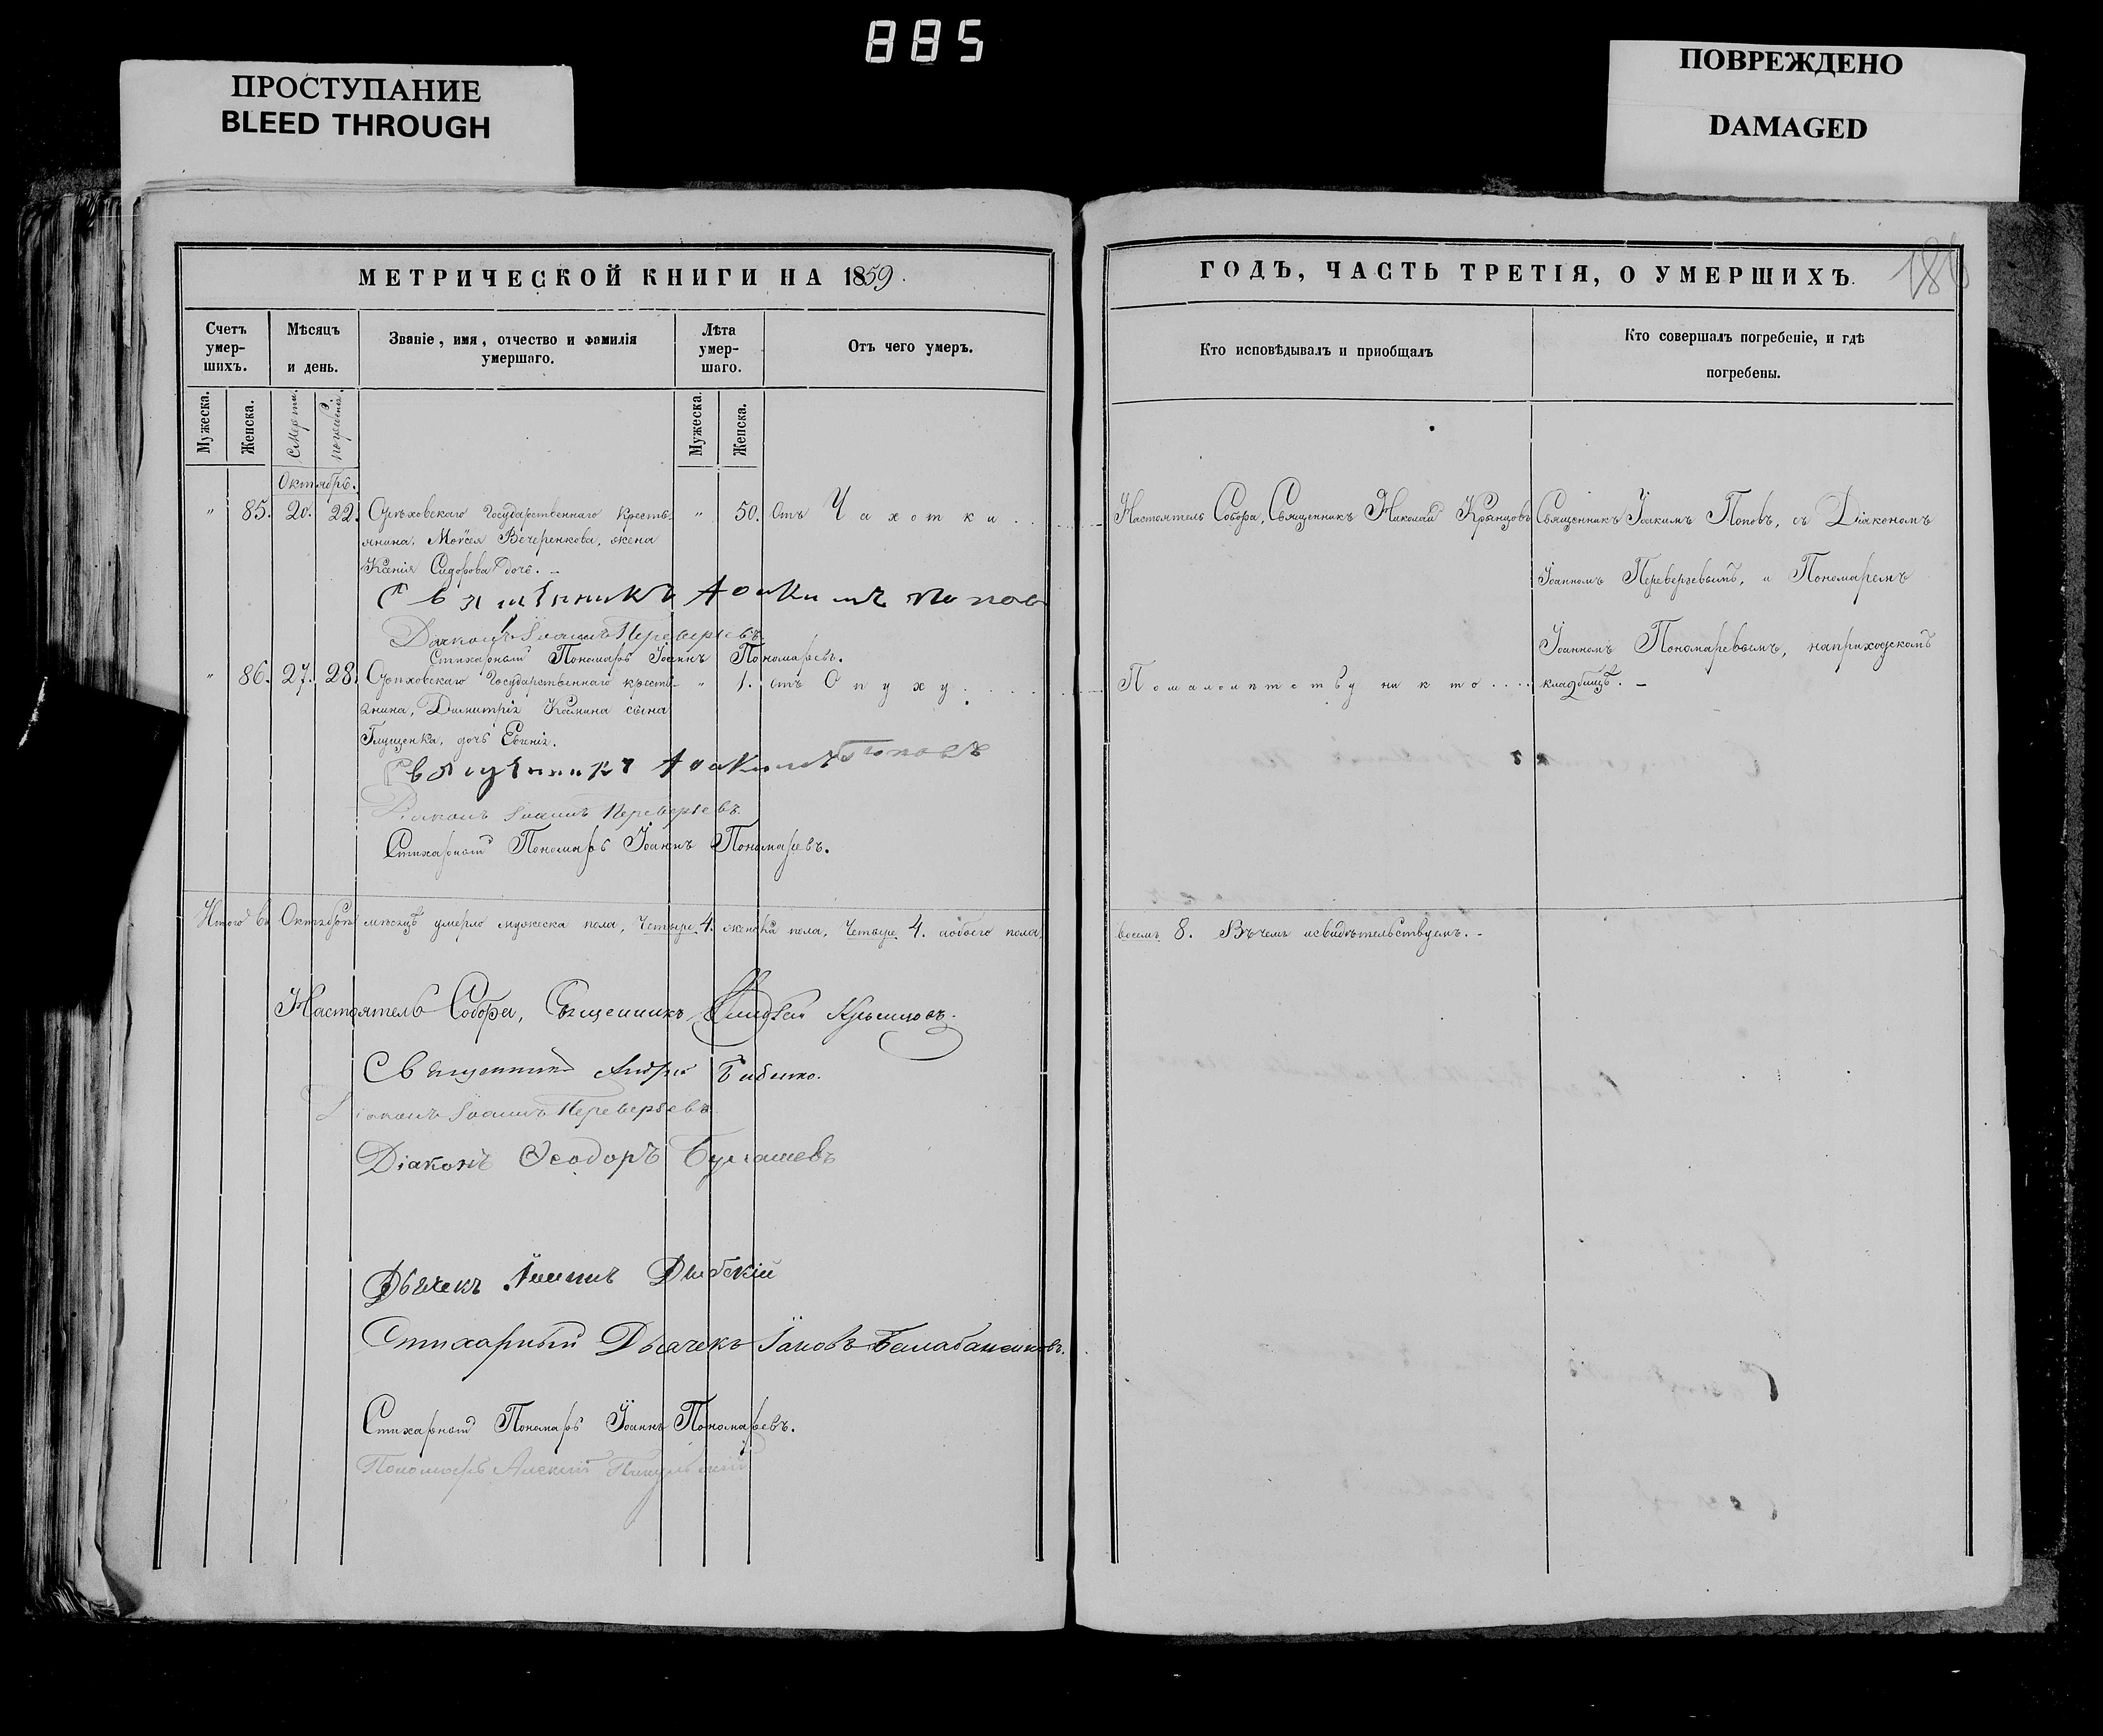 885
ПРОСТУПАНИЕ
BLEED THROUGH
ПОВРЕЖДЕНО
DAMAGED
МЕТРИЧЕСКОЙ КНИГИ НА 1859.
Счетъ умер-шихъ.
Мѣсяцъ и день.
Званіе, имя, отчество и фамилія умершаго.
Лѣта умер-шаго.
Отъ чего умеръ.
Мужеска.
Женска.
Смерти.
погребенія.
Мужеска.
Женска.
Октябрь.
" 85. 20. 22. Орѣховскаго Государственнаго Кресть- " 50. Отъ Чахотки.
янина, Моѵсея Вечеренкова, жена
Ксенія Сидорова дочь. –
Священникъ Іоакимъ Попов
Діаконъ Іоаннъ Переверзевъ.
Стихарный Пономарь Іоаннъ Пономаревъ.
" 86. 27. 28. Орѣховскаго Государственнаго кресть- " 1. отъ Опуху.
янина, Димитрія Козмина сына
Глущенка, дочь
Священникъ Іоакимъ Поповъ
Діаконъ Іоаннъ Переверзевъ.
Стихарный Пономарь Іоаннъ Пономаревъ.
Итого въ Октябрѣ мѣсяцѣ умерло мужеска пола, Четыре 4. женска пола, Четыре 4. аобоего пола,
Настоятель Собора, Священникъ Николай Крынцовъ.
Священникъ Андрей
Діаконъ Іоаннъ Переверзевъ
Діаконъ Ѳеодоръ Булгашевъ
Дьячекъ Іоаннъ
Стихарный Дьячекъ Іаковъ
Стихарный Пономарь Іоаннъ Пономаревъ.
Пономарь Алексій
ГОДЪ, ЧАСТЬ ТРЕТІЯ, О УМЕРШИХЪ.
186
Кто исповѣдывалъ и приобщалъ
Кто совершалъ погребеніе, и гдѣ погребены.
Настоятель Собора, Священникъ Николай Крынцовъ
Священникъ Іоакимъ Поповъ, съ Діакономъ
Іоанномъ Переверзевымъ, и Пономаремъ
Іоанномъ Пономаревымъ, наприходскомъ
Помалолѣтству никто....
кладбищѣ. –
восемь 8. Въ чемъ исвидѣтельствуемъ. –